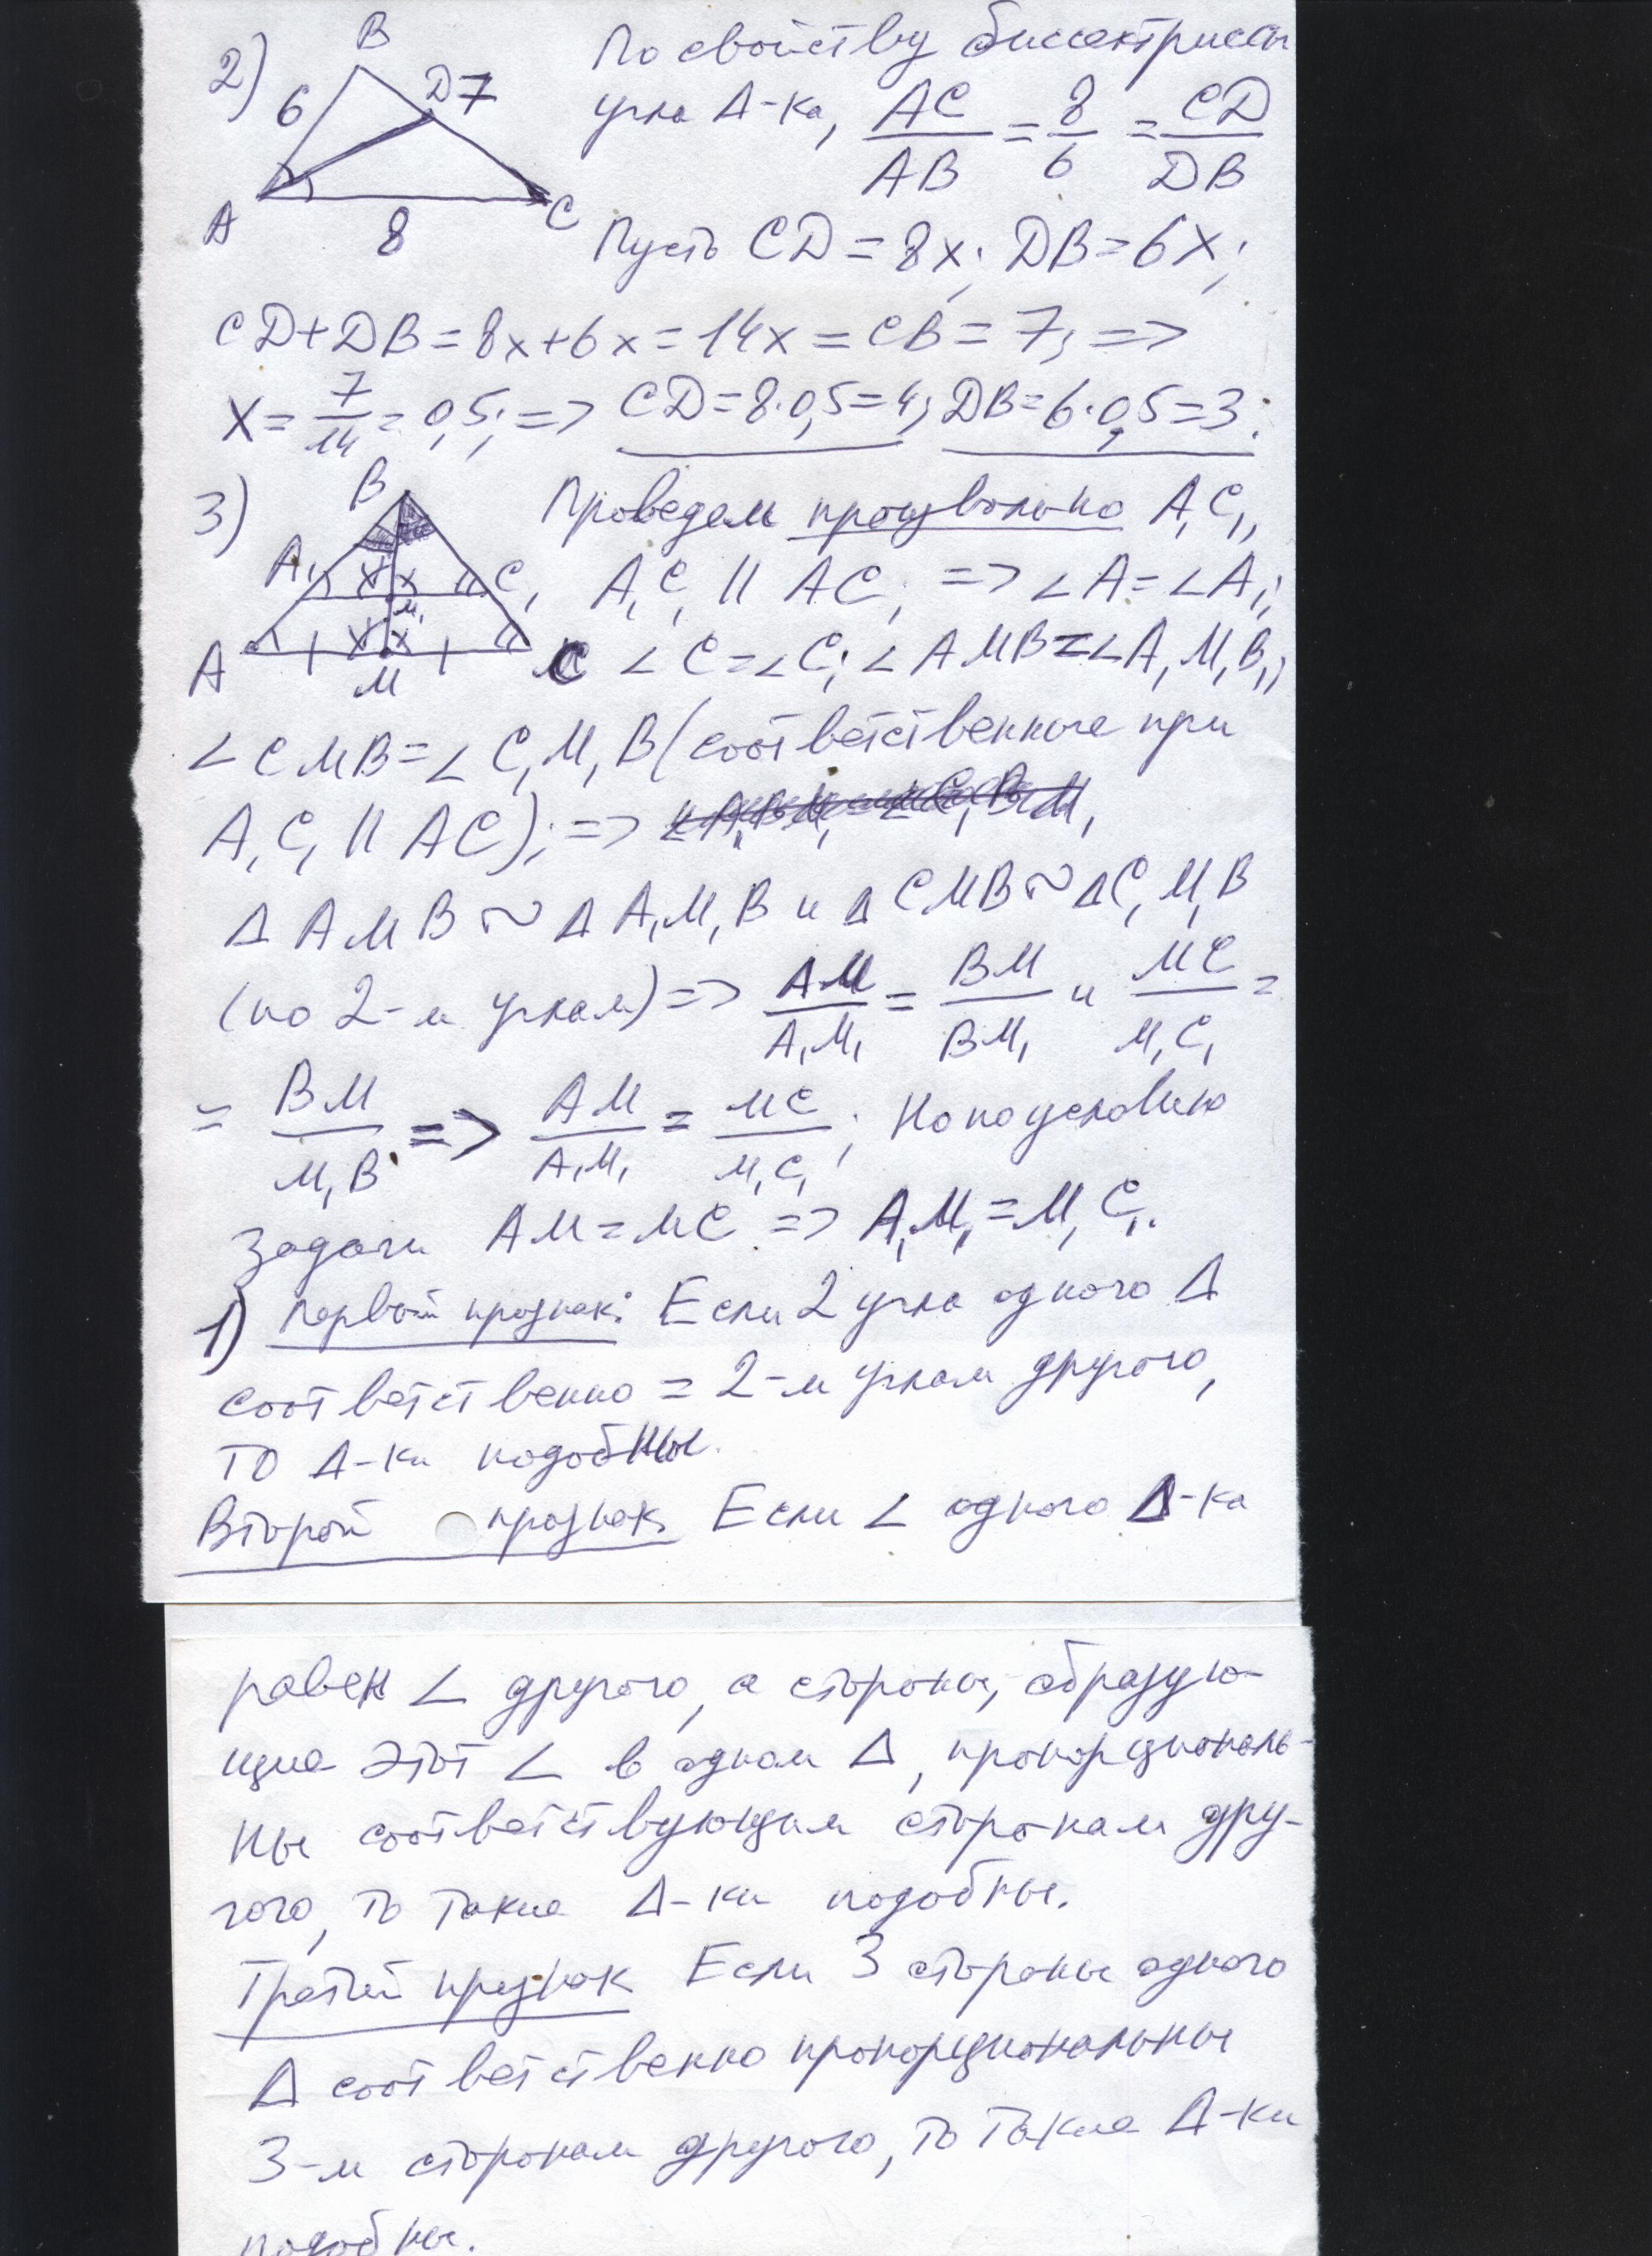 2) B По свойству биссектрисы
6 D 7 угла Δ-ка, AC/AB = 8/6 = CD/DB
A 8 C
Пусть CD = 8x; DB = 6x;
CD+DB = 8x+6x = 14x = CB = 7; =>
x = 7/14 = 0,5; => CD = 8·0,5 = 4; DB = 6·0,5 = 3;
3) B Проведем произвольно A₁C₁,
A₁ C₁ A₁C₁ || AC; => ∠A = ∠A₁;
M₁
A M C ∠C = ∠C₁; ∠AMB = ∠A₁M₁B₁,
∠CMB = ∠C₁M₁B (соответственные при
A₁C₁ || AC); =>
Δ AMB ~ Δ A₁M₁B и Δ CMB ~ Δ C₁M₁B
(по 2-м углам) => AM/A₁M₁ = BM/BM₁ и MC/M₁C₁ =
= BM/M₁B => AM/A₁M₁ = MC/M₁C₁; Но по условию
задачи AM = MC => A₁M₁ = M₁C₁.
1) Первый признак: Если 2 угла одного Δ
соответственно = 2-м углам другого,
то Δ-ки подобны.
Второй признак. Если ∠ одного Δ-ка
равен ∠ другого, а стороны, образую-
щие этот ∠ в одном Δ, пропорциональ-
ны соответствующим сторонам дру-
гого, то такие Δ-ки подобны.
Третий признак Если 3 стороны одного
Δ соответственно пропорциональны
3-м сторонам другого, то такие Δ-ки
подобны.